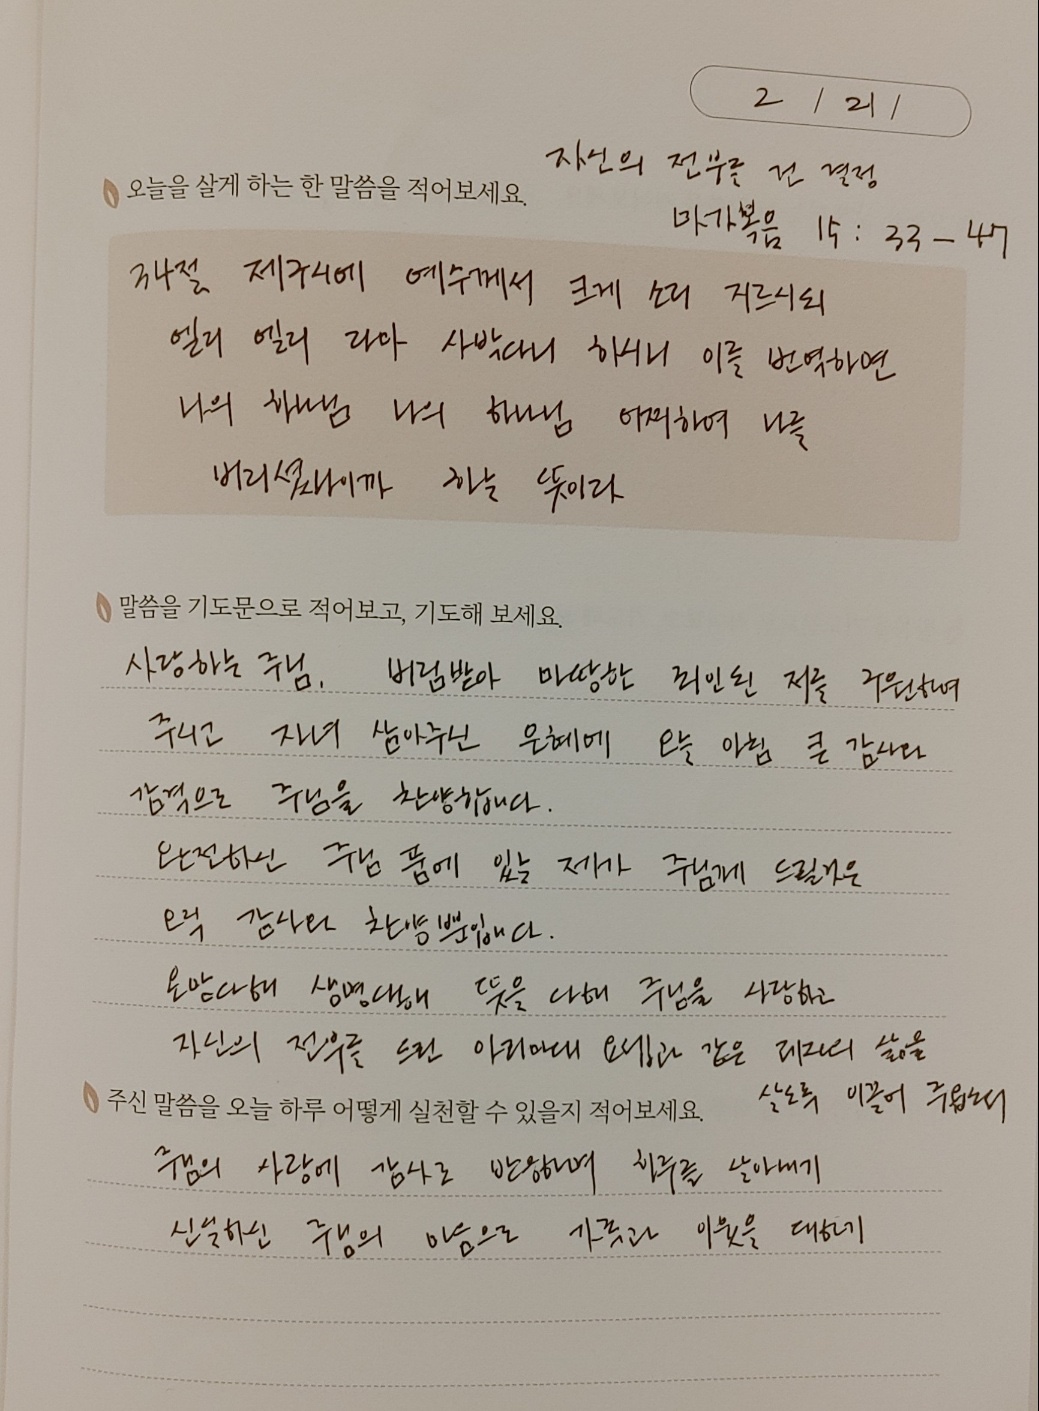 2 / 21 /
자신의 전부를 건 결정
오늘을 살게 하는 한 말씀을 적어보세요.
마가복음 15 : 33 - 47
34절 제구시에 예수께서 크게 소리 지르시되
엘리 엘리 라마 사박다니 하시니 이를 번역하면
나의 하나님 나의 하나님 어찌하여 나를
버리셨나이까 하는 뜻이라
말씀을 기도문으로 적어보고, 기도해 보세요.
사랑하는 주님, 버림받아 마땅한 죄인된 저를 구원하여
주시고 자녀 삼아주신 은혜에 오늘 아침 큰 감사와
감격으로 주님을 찬양합니다.
완전하신 주님 품에 있는 제가 주님께 드릴것은
오직 감사와 찬양뿐입니다.
온맘다해 생명다해 뜻을 다해 주님을 사랑하고
자신의 전부를 드린 아리마대 요셉과 같은 제자의 삶을
살도록 이끌어 주옵소서
주신 말씀을 오늘 하루 어떻게 실천할 수 있을지 적어보세요.
주님의 사랑에 감사로 반응하며 하루를 살아내기
신실하신 주님의 마음으로 가족과 이웃을 대하기